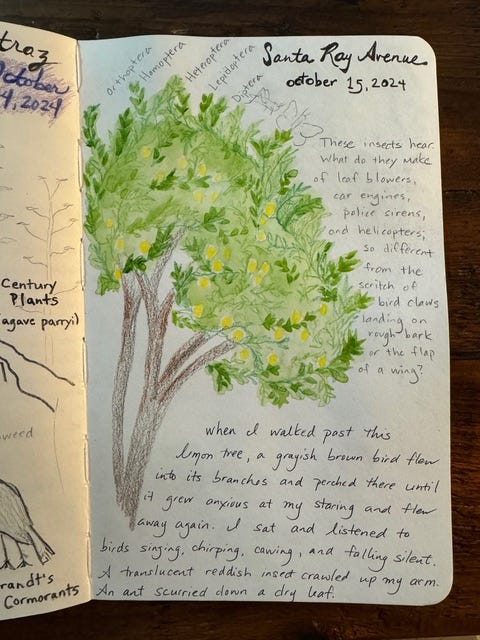 traz
October
4, 2024
Century
Plants
(agave parryi)
weed
randt's
Cormorants
Santa Ray Avenue
october 15, 2024
Orthoptera
Homoptera
Heteroptera
Lepidoptera
Diptera
These insects hear.
What do they make
of leaf blowers,
car engines,
police sirens,
and helicopters;
so different
from the
scritch of
bird claws
landing on
rough bark
or the flap
of a wing?
when I walked past this
lemon tree, a grayish brown bird flew
into its branches and perched there until
it grew anxious at my staring and flew
away again. I sat and listened to
birds singing, chirping, cawing, and falling silent.
A translucent reddish insect crawled up my arm.
An ant scurried down a dry leaf.